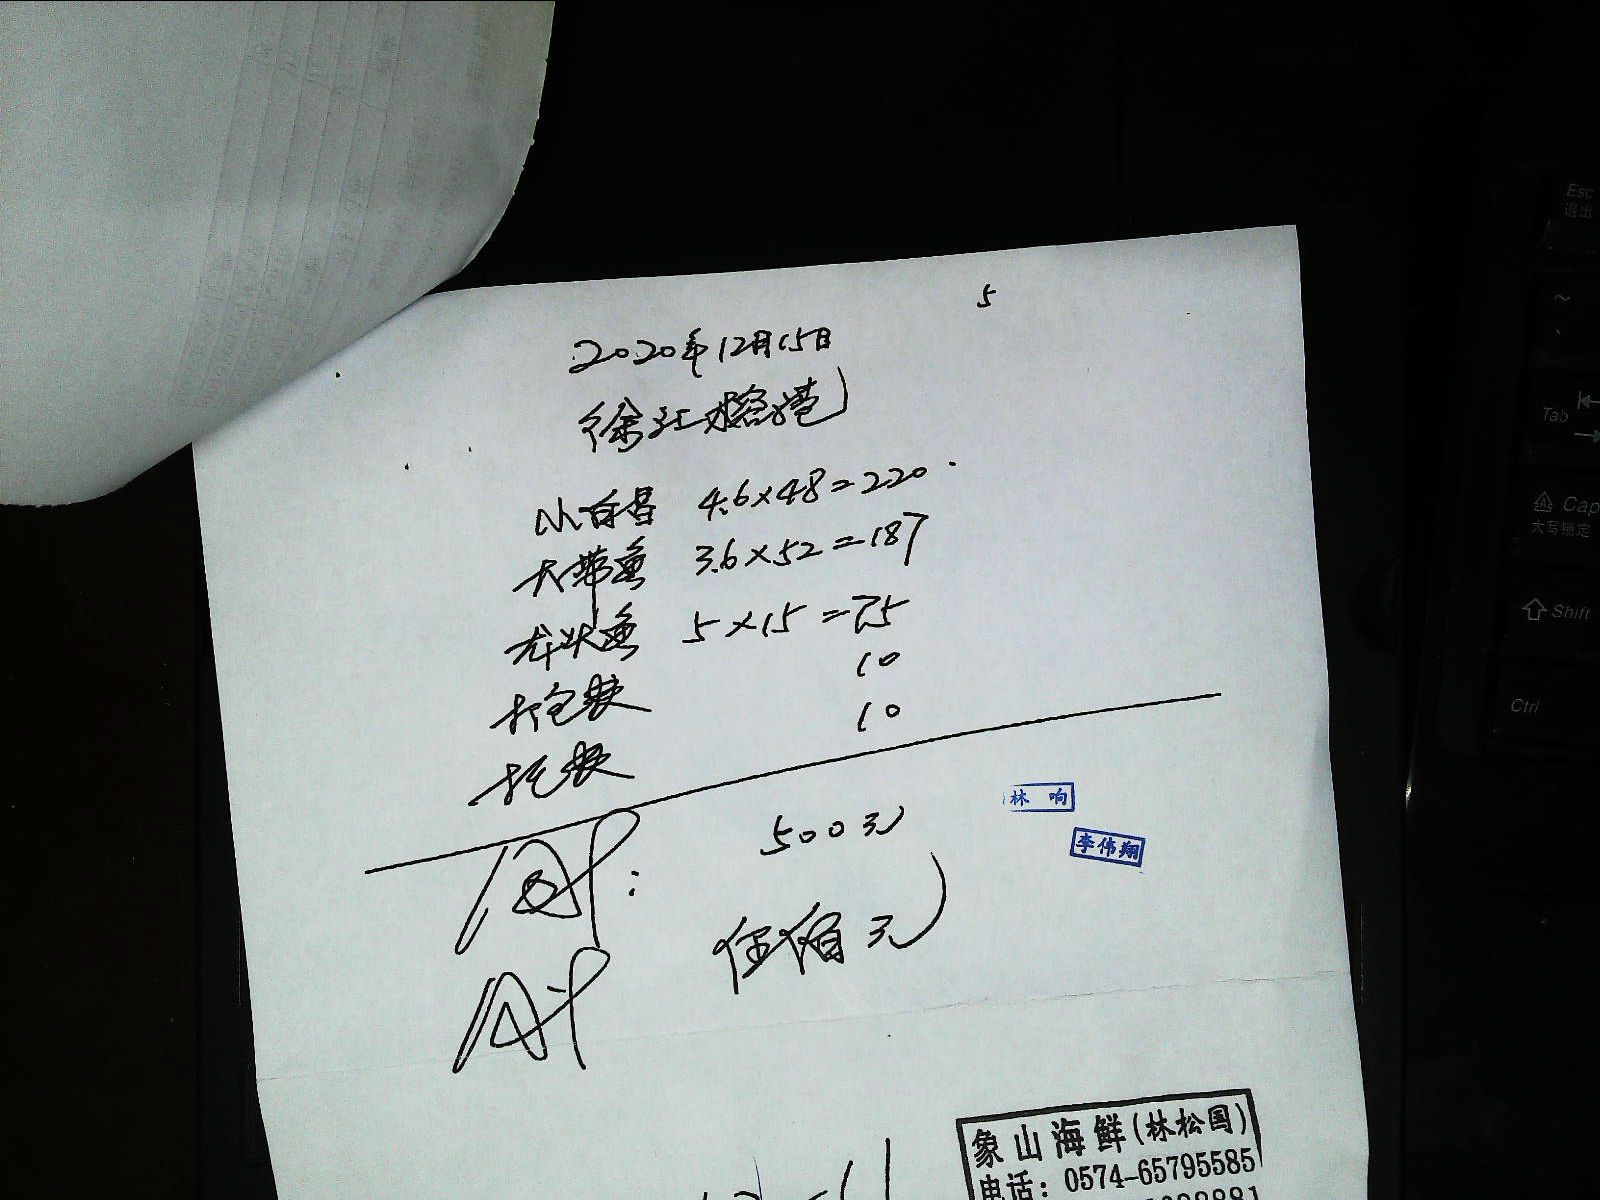 5
2020年12月15日
徐江榕港
小白昌 4.6×48=220
大带鱼 3.6×52=187
龙头鱼 5×15=75
打包装 10
托装 10
500元
林 响
李伟翔
伍佰元
象山海鲜(林松国)
电话: 0574-65795585
Esc
退出
~
Tab
Cap
大写锁定
Shift
Ctrl